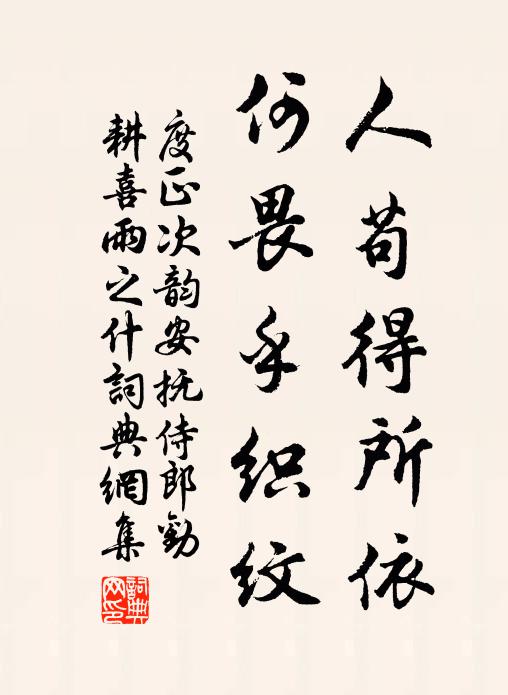 人苟得所依
何畏乎织纹
度正次韵安抚侍郎劝
耕喜雨之什詞典網集
詞典网印